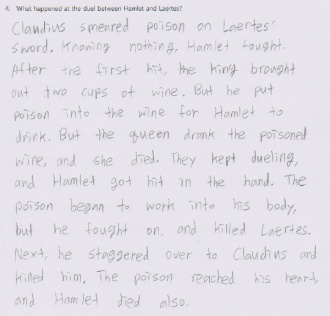 4. What happened at the duel between Hamlet and Laertes?
Claudius smeared poison on Laertes'
sword. Knowing nothing, Hamlet fought.
After the first hit, the king brought
out two cups of wine. But he put
poison into the wine for Hamlet to
drink. But the queen drank the poisoned
wine, and she died. They kept dueling,
and Hamlet got hit in the hand. The
poison began to work into his body,
but he fought on, and killed Laertes.
Next, he staggered over to Claudius and
killed him. The poison reached his heart,
and Hamlet died also.